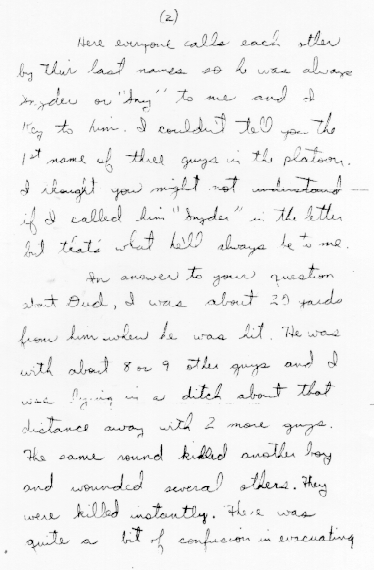 (2)
Here everyone calls each other
by their last names so he was always
Snyder or "Sny" to me and I
Key to him. I couldn't tell you the
1st name of three guys in the platoon.
I thought you might not understand
if I called him "Snyder" in the letter
but that's what he'll always be to me.
In answer to your question
about Dud, I was about 25 yards
from him when he was hit. He was
with about 8 or 9 other guys and I
was lying in a ditch about that
distance away with 2 more guys.
The same round killed another boy
and wounded several others. They
were killed instantly. There was
quite a bit of confusion in evacuating